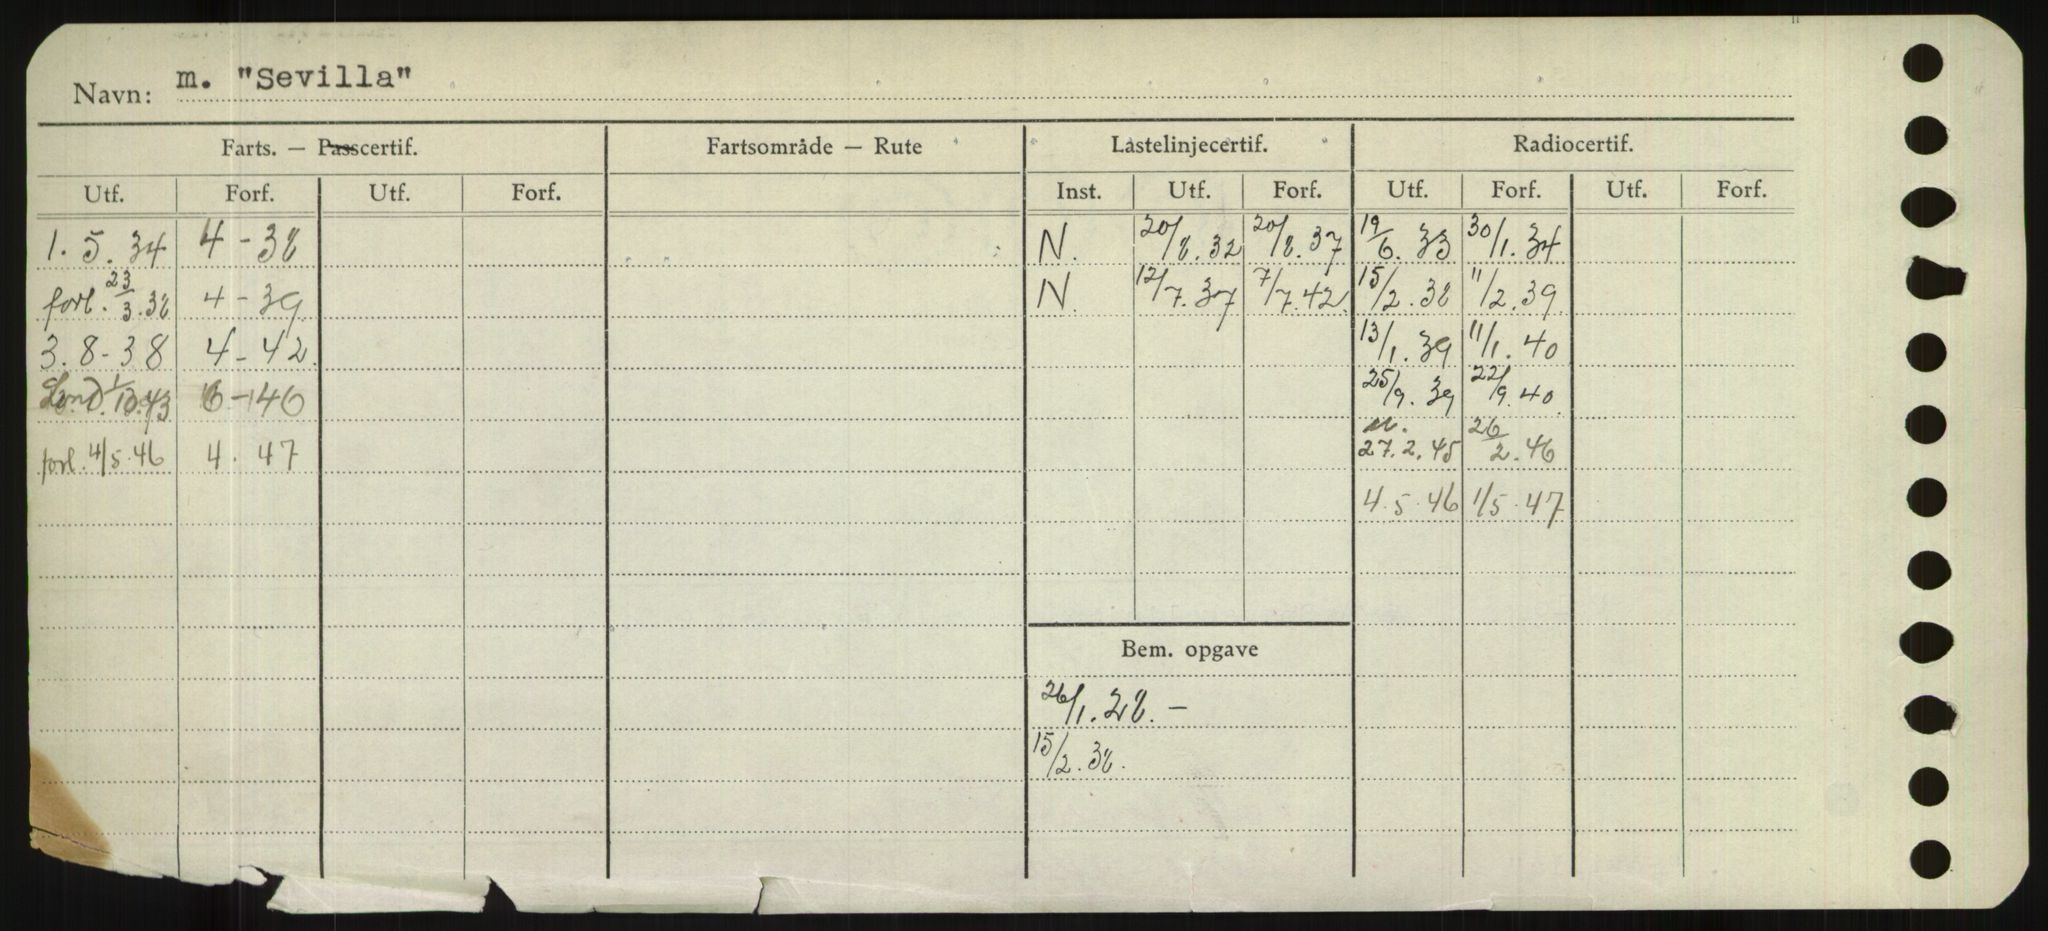 Navn: m. "Sevilla"
Farts. — Passcertif. Fartsområde — Rute Lastelinjecertif. Radiocertif.
Utf. Forf. Utf. Forf. Inst. Utf. Forf. Utf. Forf. Utf. Forf.
1. 5. 34 4 - 38 N. 20/8. 32 20/8. 37 19/6. 33 30/1. 34
forl. 23/3. 38 4 - 39 N. 12/7. 37 7/7. 42 15/2. 38 11/2. 39
3. 8 - 38 4 - 42. 13/1. 39 11/1. 40
Lond. 1/10. 43 6 - 46 25/9. 39 22/9. 40
forl. 4/5. 46 4. 47 27. 2. 45 26/2. 46
4. 5. 46 1/5. 47
Bem. opgave
26/1. 28. -
15/2. 38.